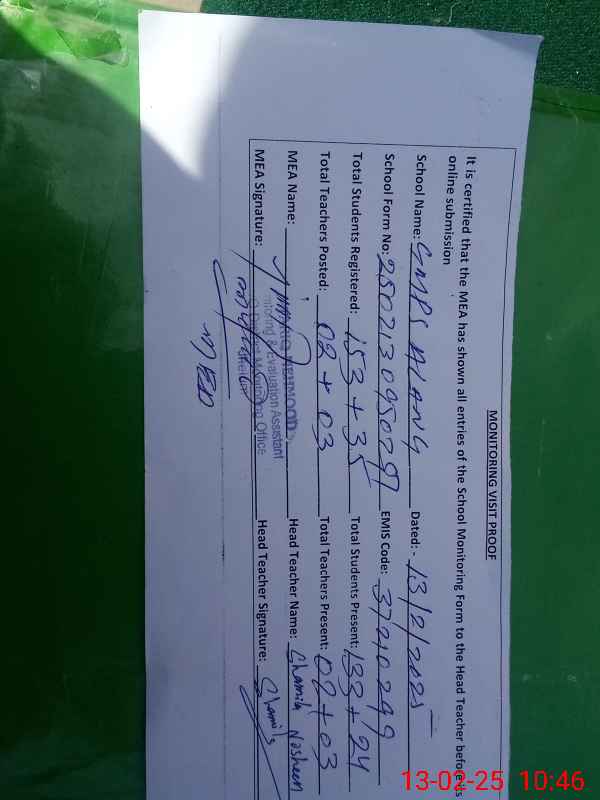 MONITORING VISIT PROOF
It is certified that the MEA has shown all entries of the School Monitoring Form to the Head Teacher before its
online submission
School Name: GMPS ALANG Dated:- 13/2/2025
School Form No: 2502130950297 EMIS Code: 37210299
Total Students Registered: 153 + 35 Total Students Present: 133 + 24
Total Teachers Posted: 02 + 03 Total Teachers Present: 02 + 03
MEA Name: Head Teacher Name: Shamila Nosheen
MEHMOOD
Monitoring & Evaluation Assistant
Monitoring Office
MEA Signature: Head Teacher Signature: Shamila
13-02-25 10:46